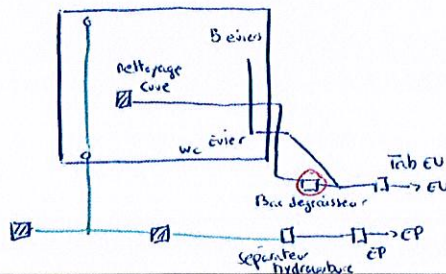 5 eviers
nettoyage
cuve
wc évier
Tab EU
EU
Bac dégraisseur
EP
EP
séparateur
hydrocarbure